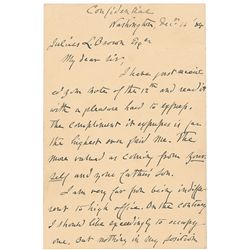 Confidential
Washington, Dec. 14 '84
Julius L Brown Esqr
My dear Sir,
I have just received
your note of the 12th and read it
with a pleasure hard to express.
The compliment it expresses is far
the highest ever paid me. The
more valued as coming from your
self and your Father's Son.
I am very far from being indiffer
ent to high office. On the contrary
I should like exceedingly to occupy
one. But nothing in my position